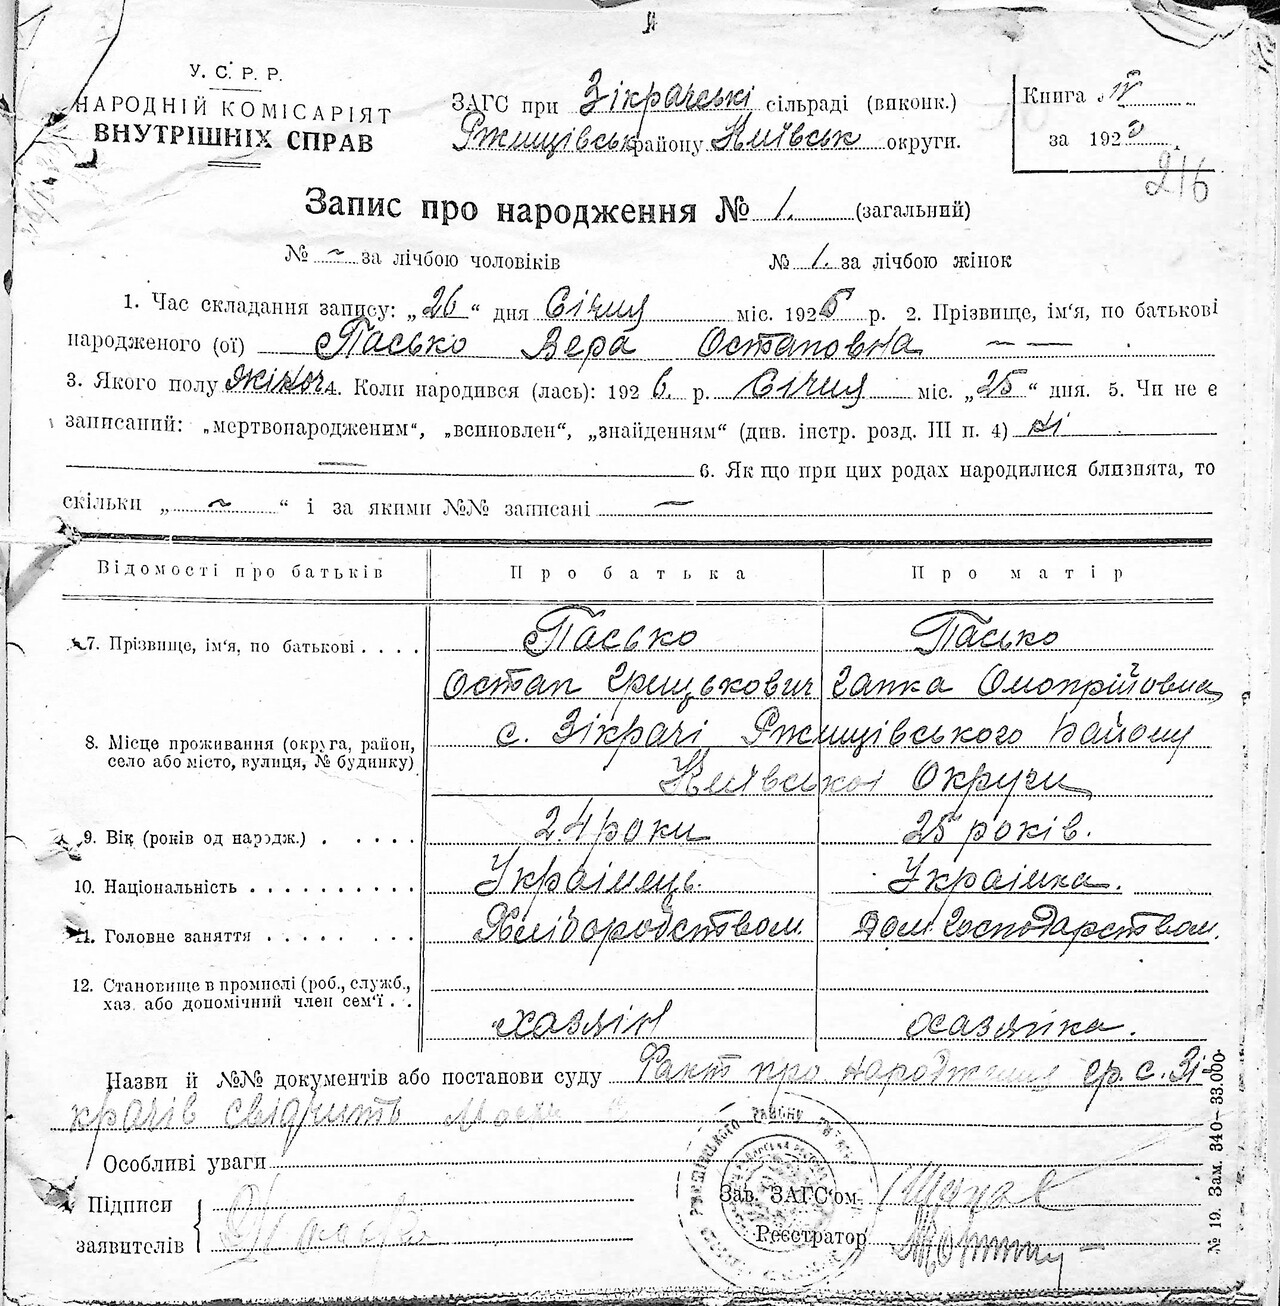 У. С. Р. Р.
НАРОДНІЙ КОМІСАРІЯТ
ВНУТРІШНІХ СПРАВ
ЗАГС при Зікрачевські сільраді (виконк.)
Ржищівськ району Київськ округи.
Книга
за 192
216
Запис про народження № 1. (загальний)
№ ~ за лічбою чоловіків № 1. за лічбою жінок
1. Час складання запису: „26“ дня Січня міс. 1926 р. 2. Прізвище, ім'я, по батькові
народженого (ої) Пасько Вера Остаповна — —
3. Якого полу жіноч. 4. Коли народився (лась): 192 6. р. Січня міс. „25“ дня. 5. Чи не є
записаний: „мертвонародженим“, „всиновлен“, „знайденням“ (див. інстр. розд. III п. 4) ні
— 6. Як що при цих родах народилися близнята, то
скільки „ ~ “ і за якими №№ записані —
Відомості про батьків Про батька Про матір
7. Прізвище, ім'я, по батькові . . . . Пасько Пасько
Остап Грицькович Гапка Омопрійовна
8. Місце проживання (округа, район, с. Зікрачі Ржищівського Району
село або місто, вулиця, № будинку) Київської Округи
9. Вік (років од народж.) . . . . . 24 роки 25 років.
10. Національність . . . . . . . . . . Українець. Українка.
11. Головне заняття . . . . . . . . Хліборобством. Дом. Господарством.
12. Становище в промислі (роб., служб.,
хаз. або допомічний член сем'ї . . хазяін хазяйка.
Назви й №№ документів або постанови суду Факт про народження гр. с. Зі-
крачів свідчить
Особливі уваги
Підписи
заявителів
Зав. ЗАГС'ом
Реєстратор
№ 19. Зам. 340—33.000